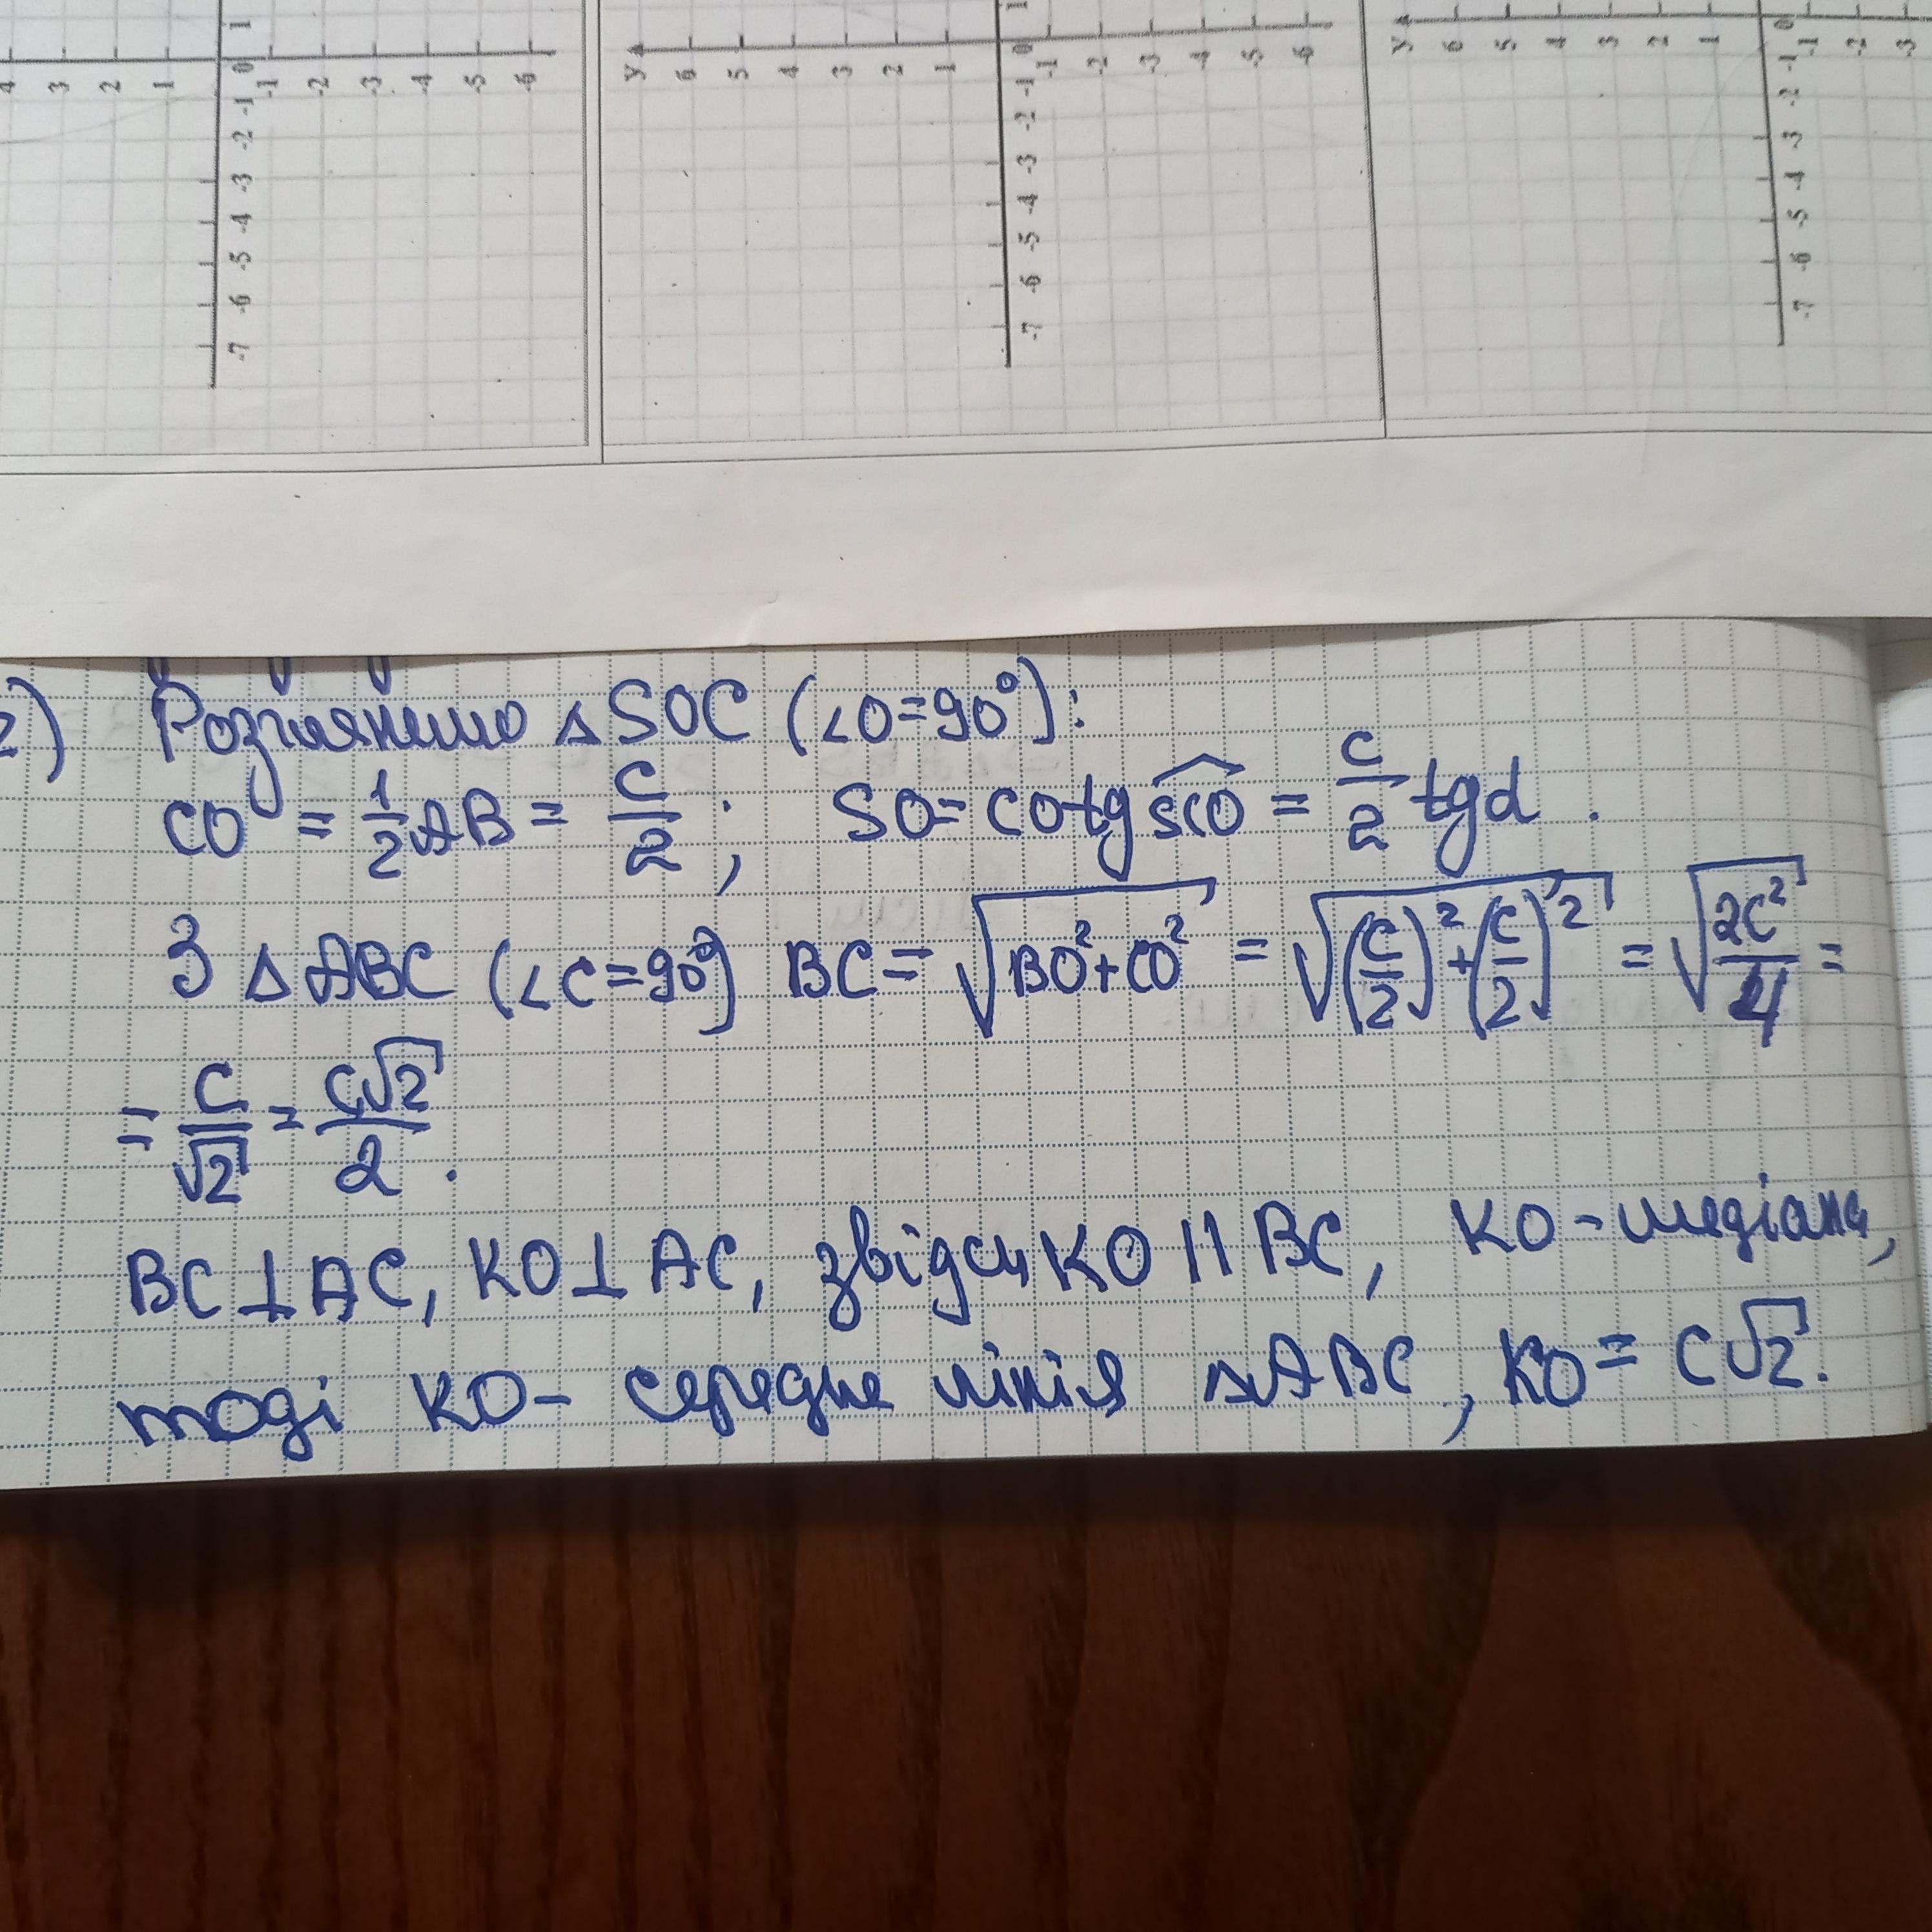 4 3 2 1 0 -1 -2 -3 -4 -5 -6
1
-1 -2 -3 -4 -5 -6 -7
У 6 5 4 3 2 1 0 -1 -2 -3 -4 -5 -6
1
-1 -2 -3 -4 -5 -6 -7
У 6 5 4 3 2 1 0 -1 -2 -3
-1 -2 -3 -4 -5 -6 -7
2) Розглянемо △SOC (∠O=90°):
CO = 1/2 AB = C/2; SO = CO tg SCO = C/2 tg α.
З △ABC (∠C=90°) BC = √(BO²+CO²) = √((C/2)²+(C/2)²) = √(2C²/4) =
= C/√2 = C√2/2.
BC⊥AC, KO⊥AC, звідси KO || BC, KO-медіана,
тоді KO- середнє лінія △ABC, KO = C√2.